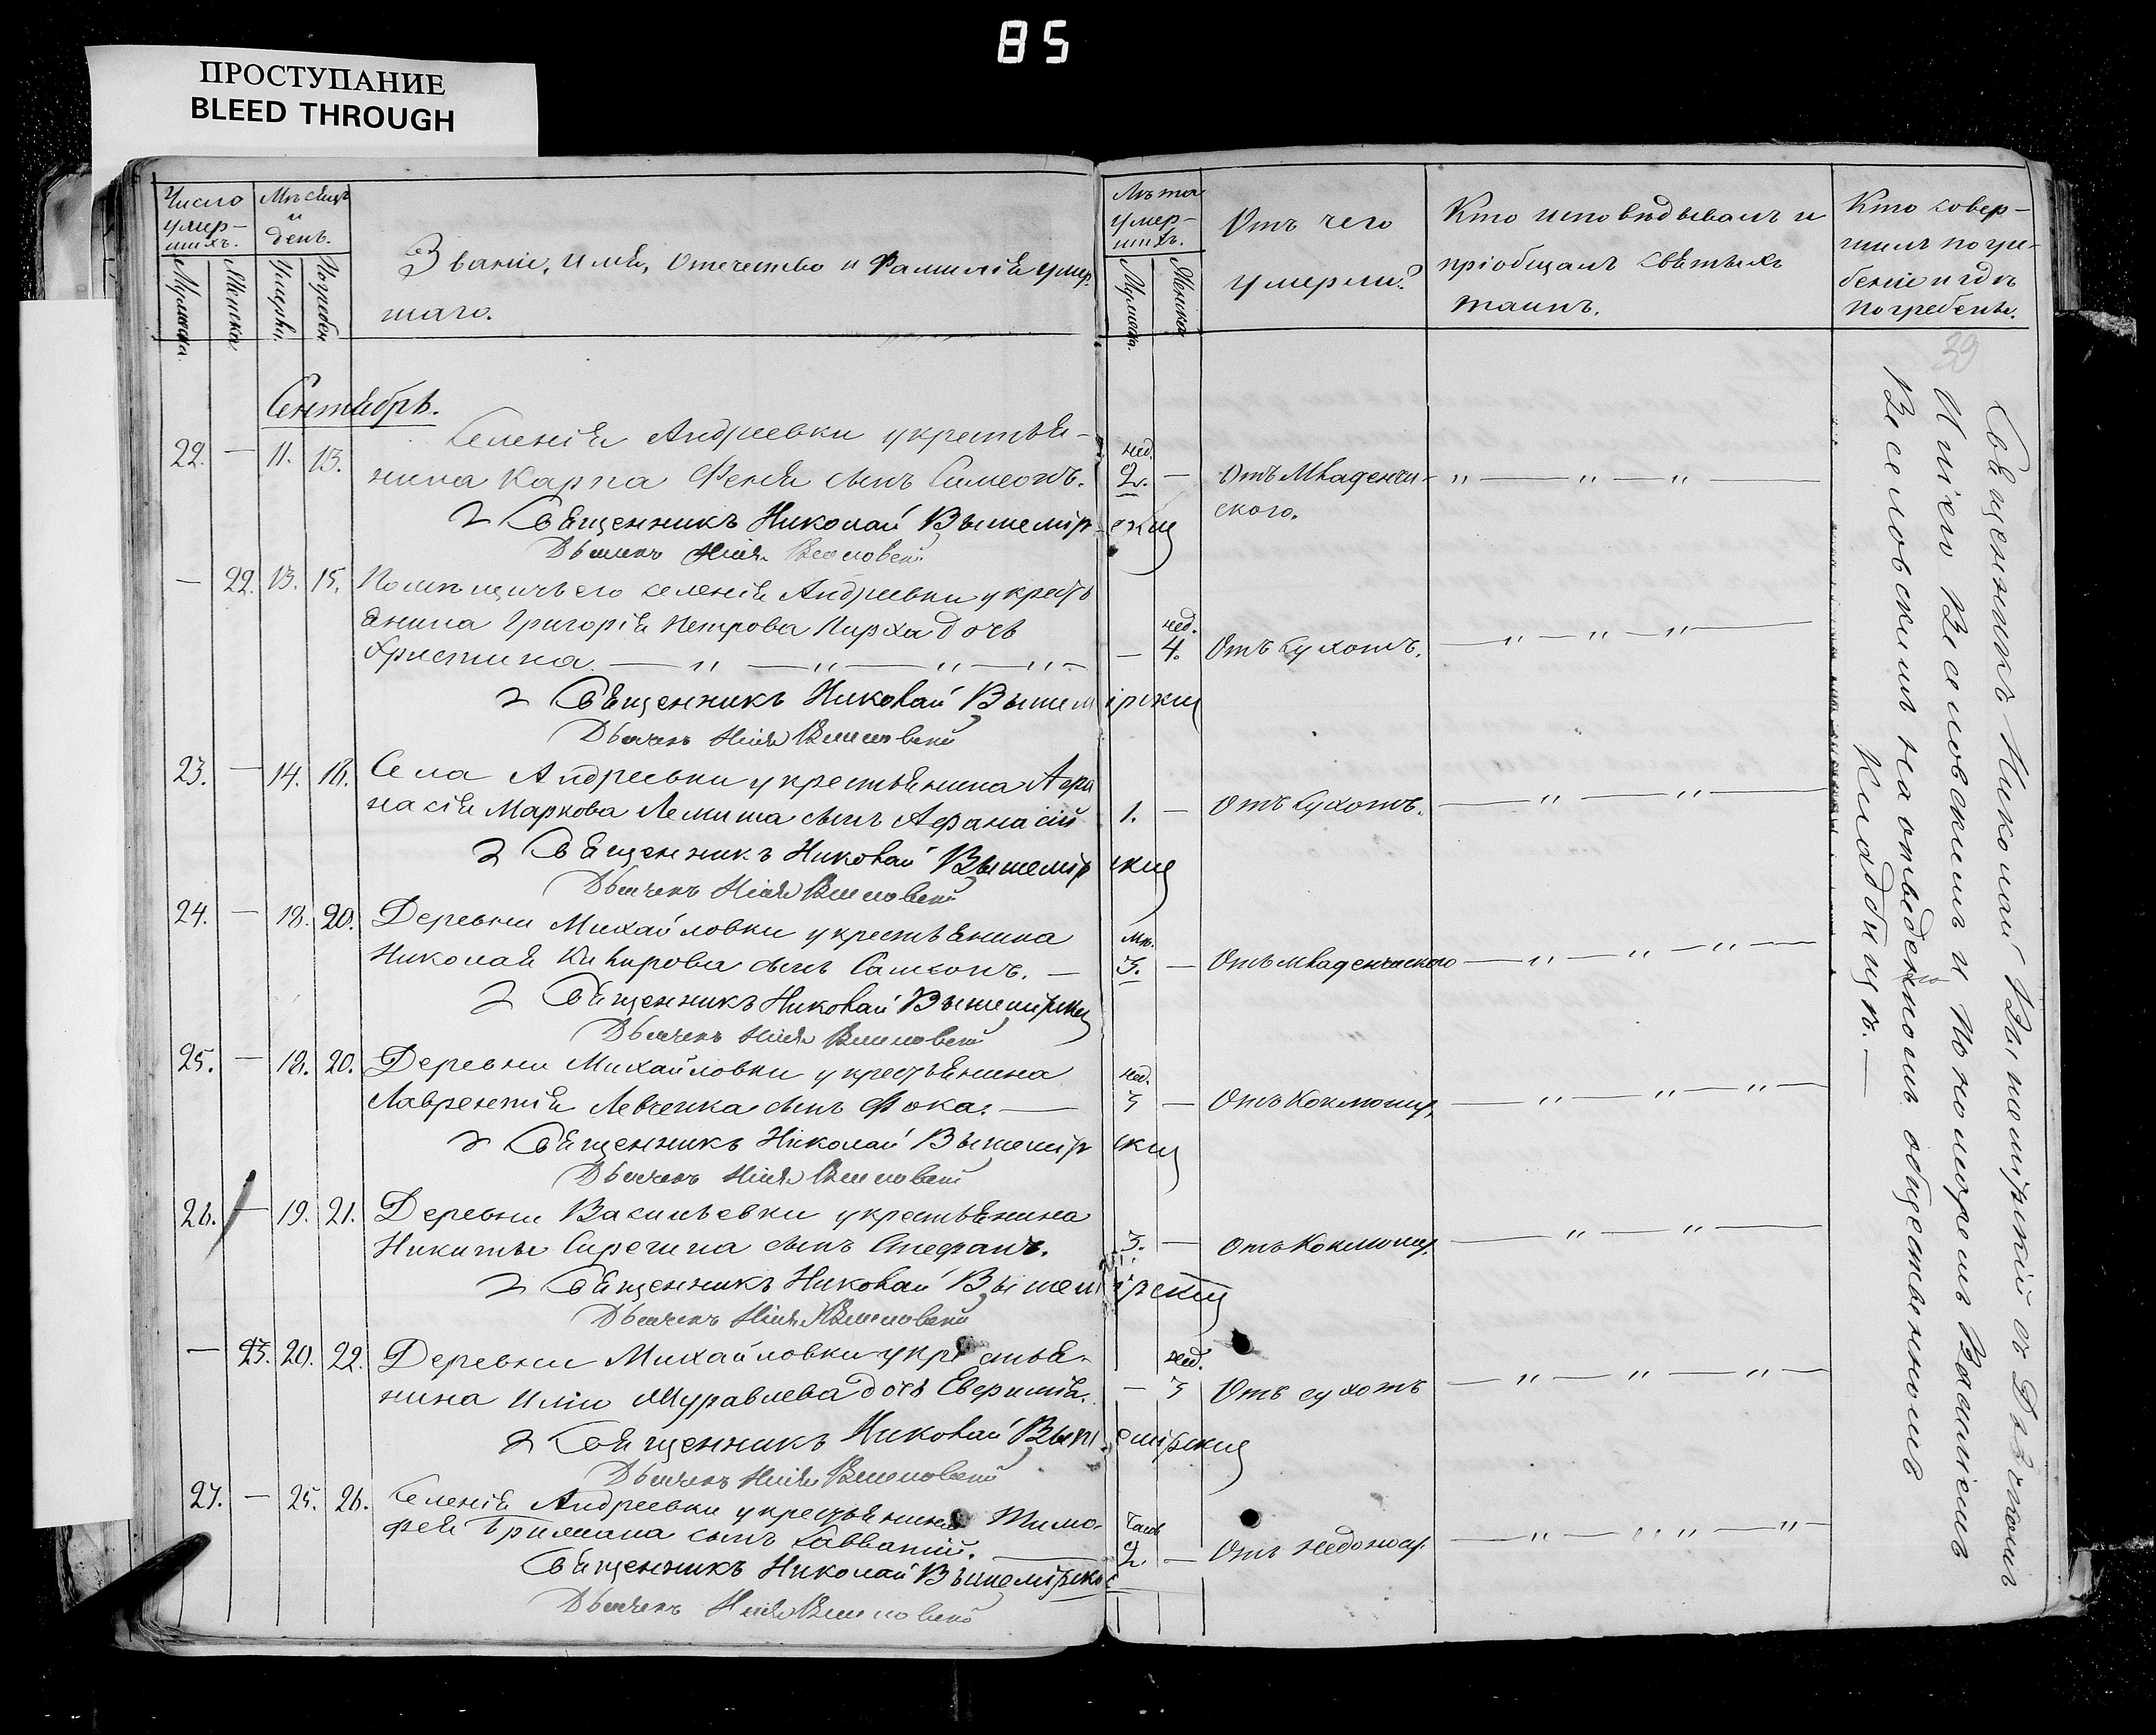 85
ПРОСТУПАНИЕ
BLEED THROUGH
Число умер-шихъ.
Мужеска.
Женска.
Мѣсяцъ и день.
Умерли.
Погребен
Званіе, имя, отечество и Фамилія умер-
шаго.
Лѣта умер-шихъ.
Мужеска.
Женска
Отъ чего
умерли?
Кто исповѣдывалъ и
пріобщалъ святыхъ
таинъ.
Кто совер-
шилъ погре-
беніе и гдѣ
погребены.
39
Сентябрь.
22. — 11. 13. Селенія Андреевки у крестья-
нина Карпа Феня сынъ Симеонъ. нед. 2. — Отъ Младенче-
ского.
Священникъ Николай Вышемірскій
Дьячекъ Илія Веселовскій
— 22. 13. 15. Помѣщичьего селенія Андреевки у кресть
янина Григорія Петрова Пирха дочь
Христина. — нед. 4. Отъ Сухотъ.
Священникъ Николай Вышемірскій
Дьячекъ Илія Веселовскій
23. — 14. 18. Села Андреевки у крестьянина Афа
насія Маркова Лемиша сынъ Афанасій 1. — Отъ Сухотъ.
Священникъ Николай Вышемірскій
Дьячекъ Илія Веселовскій
24. — 18. 20. Деревни Михайловки у крестьянина
Николая сынъ Самсонъ. — 3. — Отъ младенческого
Священникъ Николай Вышемірскій
Дьячекъ Илія Веселовскій
25. — 18. 20. Деревни Михайловки у крестьянина
Лаврентія Левченка сынъ Фока. — нед. 3 — Отъ Коклюша
Священникъ Николай Вышемірскій
Дьячекъ Илія Веселовскій
26. — 19. 21. Деревни Васильевки у крестьянина
Никиты Сирегина сынъ Стефанъ. 3. — Отъ Коклюша
Священникъ Николай Вышемірскій
Дьячекъ Илія Веселовскій
— 23. 20. 22. Деревни Михайловки у крестья-
нина Иліи Журавлева дочь Евфимія. — нед. 3 Отъ сухотъ
Священникъ Николай Вышемірскій
Дьячекъ Илія Веселовскій
27. — 25. 26. Селенія Андреевки у крестьянина Тимо-
фея Тримана сынъ Савватій. — час. 2. — Отъ недонос.
Священникъ Николай Вышемірскій
Дьячекъ Илія Веселовскій
Священникъ Николай Вышемірскій съ Дьячкомъ
Иліею Веселовскимъ и Пономоремъ Василіемъ
Веселовскимъ на отведенномъ общественномъ
Кладбищѣ. —